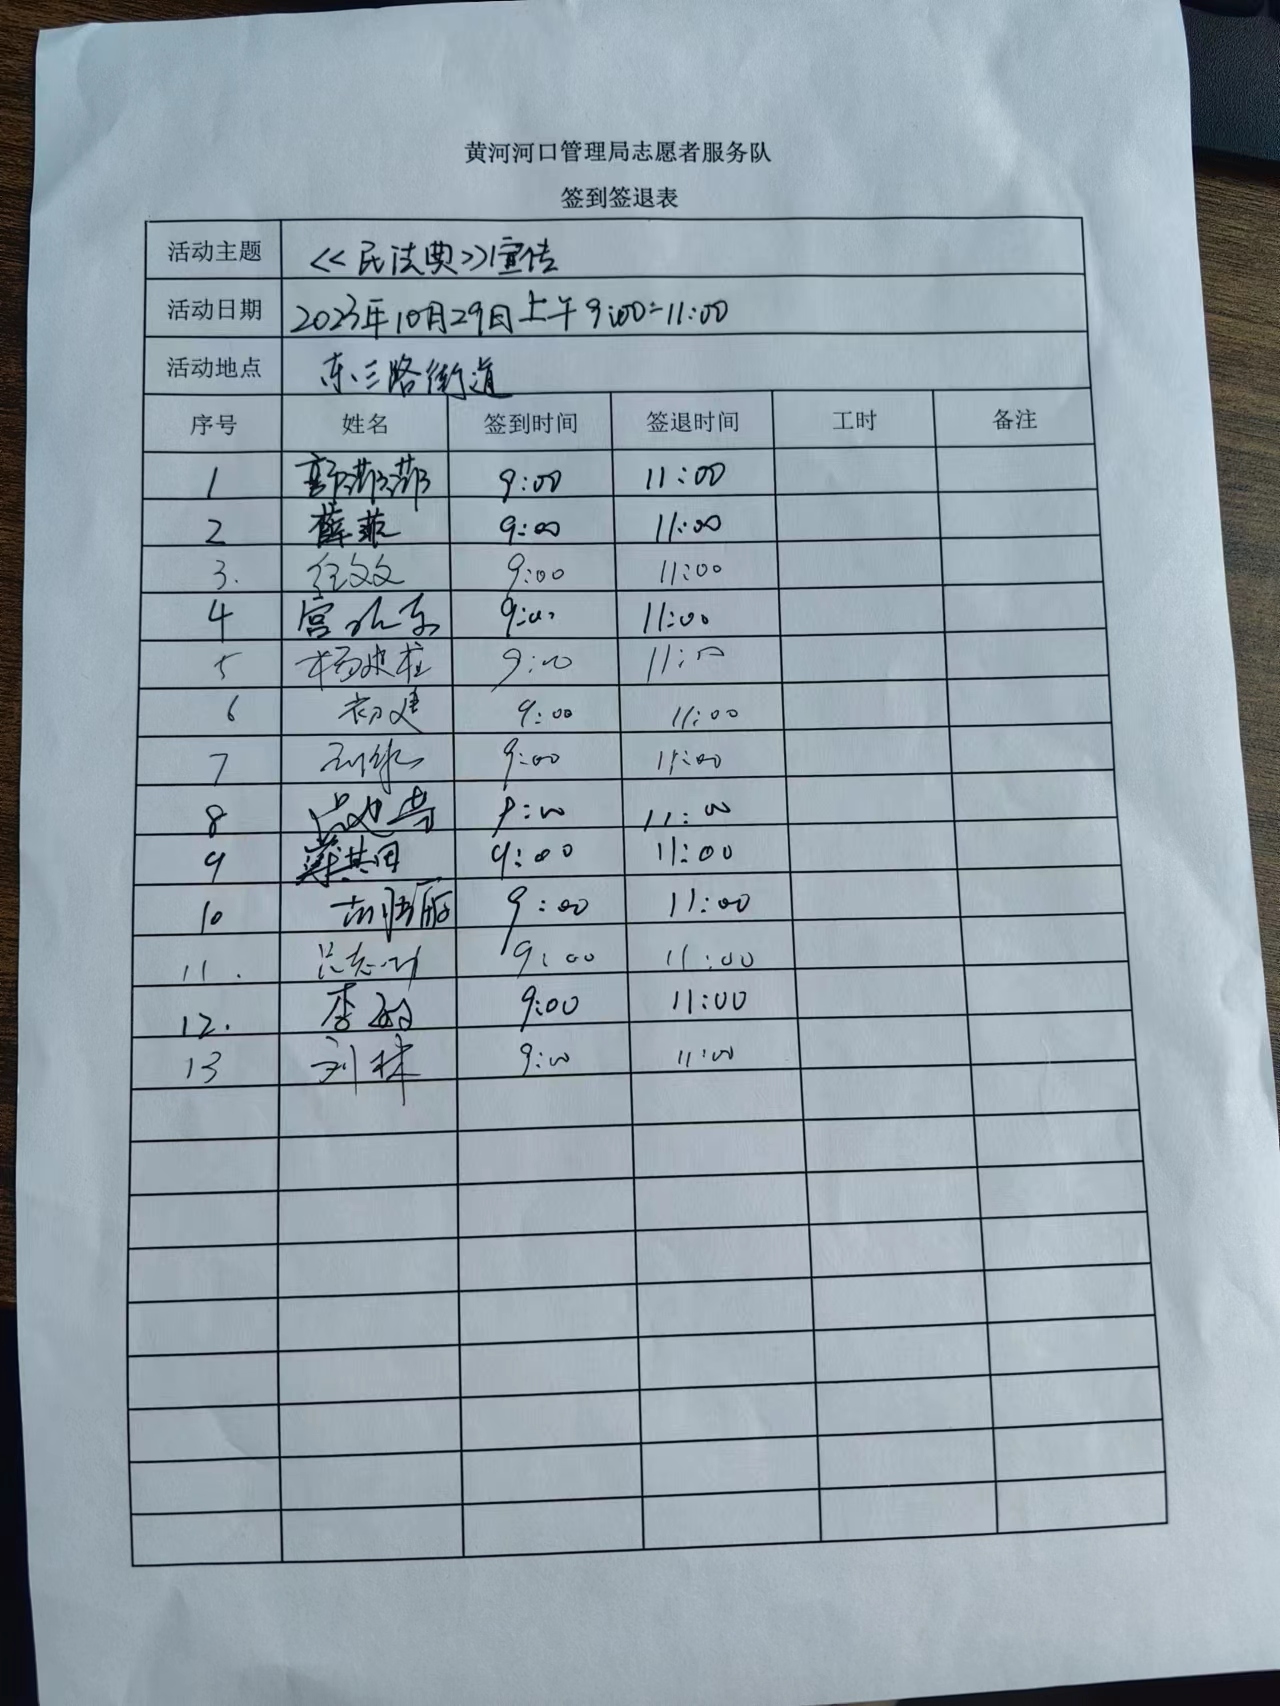 黄河河口管理局志愿者服务队
签到签退表
活动主题 <<民法典>>宣传
活动日期 2023年10月29日上午9:00-11:00
活动地点 东三路街道
序号 姓名 签到时间 签退时间 工时 备注
1 郭 9:00 11:00
2 薛菲 9:00 11:00
3. 任文文 9:00 11:00
4 宫 东 9:00 11:00
5 杨 9:00 11:00
6 初建 9:00 11:00
7 9:00 11:00
8 9:00 11:00
9 9:00 11:00
10 9:00 11:00
11. 吕志 9:00 11:00
12. 李 9:00 11:00
13 刘林 9:00 11:00